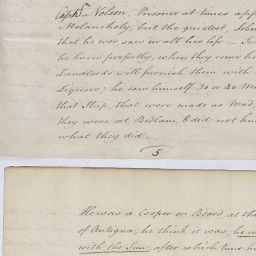 Captn. Nelson, Prisoner at times app
Melancholy, but the quietest, Sober
that he ever saw in all his life — See
he knew perfectly, when they come ho
Landlords will furnish them with
Liquors; he saw himself 30 or 40 Me
that Ship, that were made as Mad,
they were at Bedlam, & did not kn
what they did.
5
He was a Cooper on Board, at the
of Antigua, he think it was, he w
with the Sun, after which time h